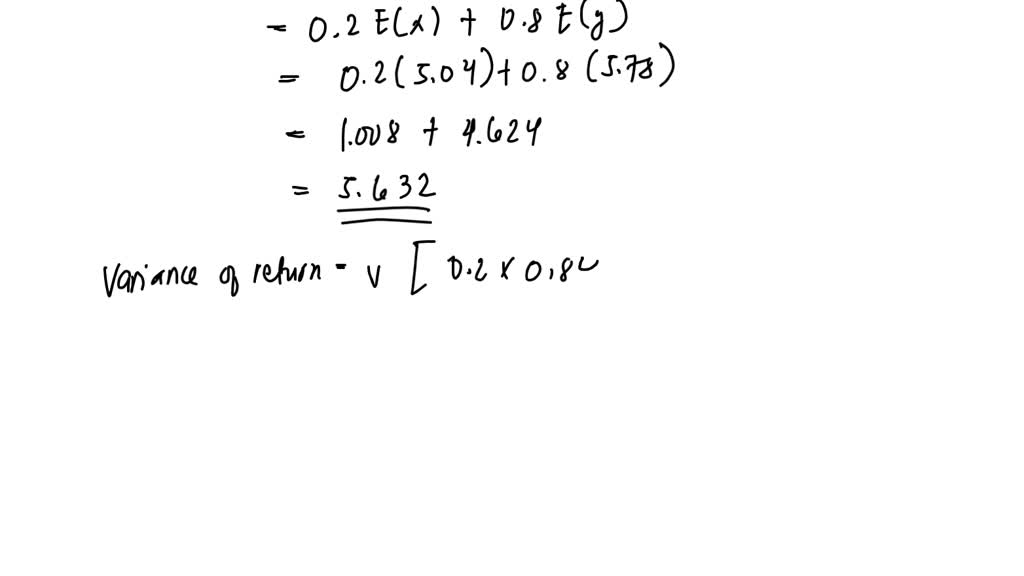 = 0.2 E(x) + 0.8 E(y)
= 0.2(5.04) + 0.8 (5.78)
= 1.008 + 4.624
= 5.632
Variance of return = v [ 0.2 x 0.8